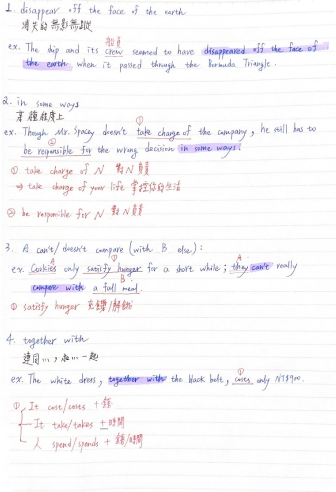 1. disappear off the face of the earth
消失的無影無蹤
船員
ex. The ship and its crew seemed to have disappeared off the face of
the earth when it passed through the Bermuda Triangle.
2. in some ways
某種程度上
ex. Though Mr. Spacey doesn't take charge of the company, he still has to
be responsible for the wrong decision in some ways.
① take charge of N 對N負責
⇒ take charge of your life 掌控你的生活
② be responsible for N 對N負責
3. A can't/doesn't compare (with B else):
ex. Cookies only satisfy hunger for a short while; they can't really
compare with a full meal.
① satisfy hunger 充饑/解餓
4. together with
連同..., 和...一起
ex. The white dress, together with the black belt, costs only NT$900.
① It cost/costs + 錢
It take/takes + 時間
人 spend/spends + 錢/時間